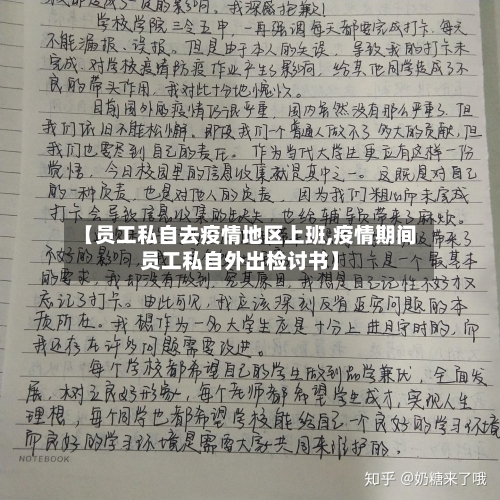 我深感抱歉!
学校学院三令五申,一再强调每天都要完成打卡,每天
不能漏报、误报。但是由于本人的失误,导致我的打卡未
完成,对学校疫情防疫作业产生了影响,给其他同学造成了不
良的带头作用,我对此十分地愧疚。
目前国外的疫情仍很严重,国内虽然没有那么严重了,但
我们依旧不能松懈。即使我们个普通人做不了多大的贡献,但
我们也要尽到自己的责任。作为当代大学生更应有这样一份
觉悟,今日校园里的信息收集就是其中之一。这既是对自己
的一种负责,也是对他人的负责,因为我们粗心而未完成
打卡会导致信息收集的缺失,也给辅导员带来了麻烦。
【员工私自去疫情地区上班,疫情期间
员工私自外出检讨书】
打卡是一个最基本
的要求,我却没有做到,究其原因,我想是自己记性不好才又
忘记了打卡。由此可见,我应该深刻反省并究问题的本
质所在。我想作为一名大学生应是十分上进且守时的,而
我还存在许多问题需要改进。
每个学校都希望自己的学生做到品学兼优,全面发
展,树立良好形象,每个老师都希望学生成才,实现人生
理想,每个同学也都希望学校能给自己一个良好的学习环境
而良好的学习环境是需要大家共同来维护的。
NOTEBOOK
知乎 @奶糖来了哦